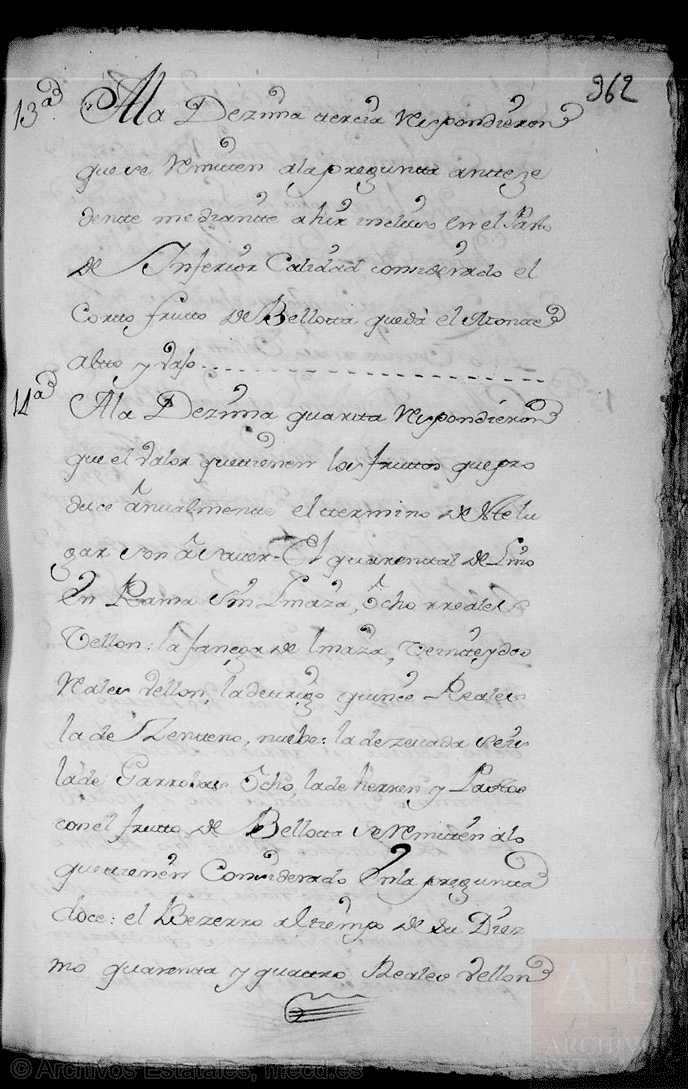 962
13ª Ala Dezima tercia Respondieron
que se Remiten ala pregunta anteze
dente mediante a hir incluso en el Pasto
de Inferior Calidad considerado el
Corto frutto de Bellotta que dà el Monte
alto y vajo
14ª Ala Dezima quarta Respondieron
que el valor que tienen los fruttos que pro
duce ânualmente el termino de este lu
gar son â saver = El quarental de Lino
en Rama sin Linaza, ôcho rreales
Vellon: la fanega de linaza, Veinte y dos
Reales vellon, la de trigo quince Reales
la de Zenteno, nuebe: la de zevada seis
la de Garrobas ôcho, la de herren y Pastos
con el frutto de Bellotta se Remiten alo
que tienen Considerado en la pregunta
doce: el Bezerro al tiempo de su Diez
mo quarenta y quattro Reales vellon
AE
ARCHIVO
© Archivos Estatales, mecd.es